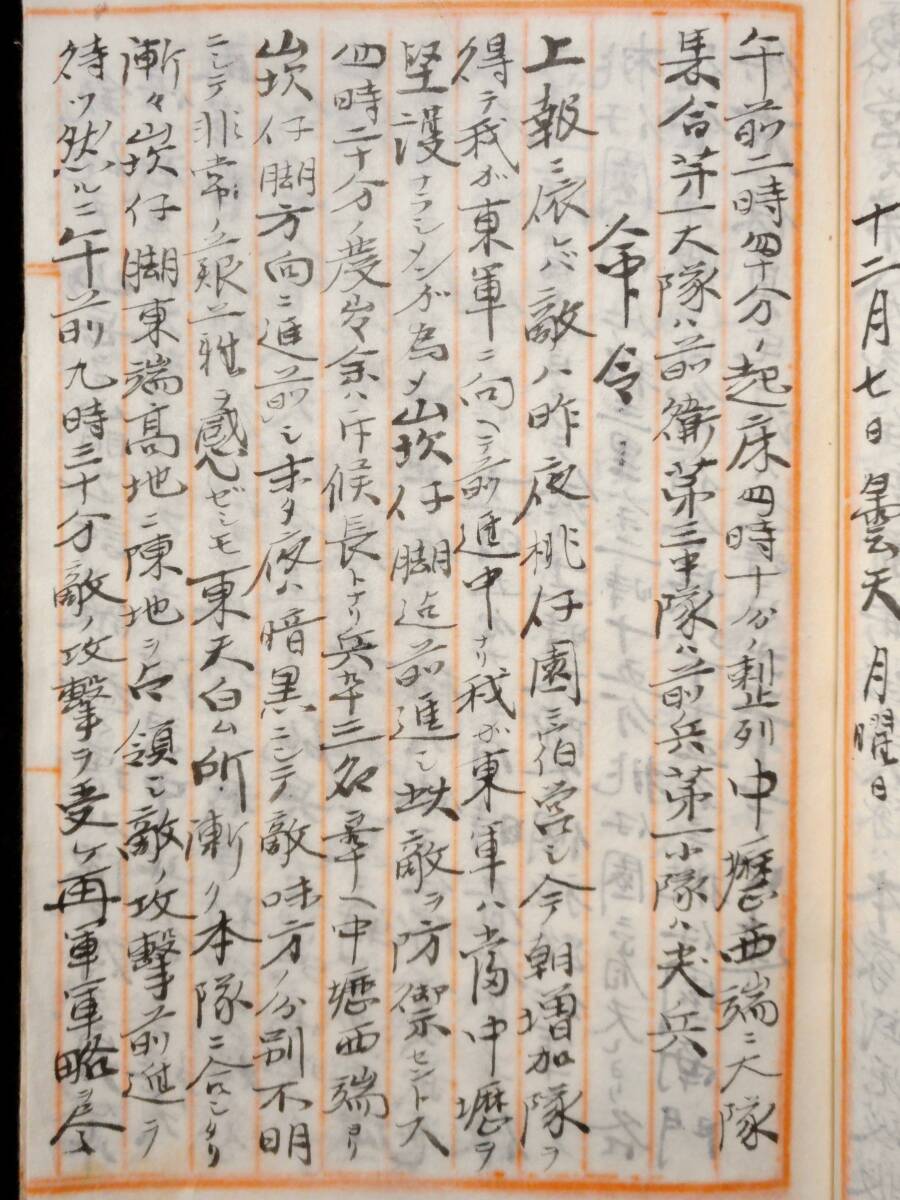 十二月七日曇天 月曜日
午前二時四十分ノ起床四時十分ノ整列中壢西端ニ大隊
集合第一大隊ハ前衛第三中隊ハ前兵第一小隊ハ尖兵
命令
上報ニ依レバ敵ハ昨夜桃仔園ニ宿営シ今朝増加隊ヲ
得テ我ガ東軍ニ向ヘテ前進中ナリ我ガ東軍ハ当中壢ヲ
堅護ナラシメンガ為メ山坎仔脚迄前進シ敵ヲ防禦セントス
四時二十分ノ度余ハ斥候長トナリ兵卒三名率ヘ中壢西端ヨリ
山坎仔脚方向ニ進前シ未タ夜ハ暗黒ニシテ敵味方ノ分別不明
ニシテ非常ノ艱難ヲ感ゼシモ東天白ム所漸ク本隊ニ合シタリ
漸々崁仔脚東端高地ニ陳地ヲ占領シ敵ノ攻撃前進ヲ
待ツ然ルニ午前九時三十分敵ノ攻撃ヲ受ケ再軍軍略ヲ尽